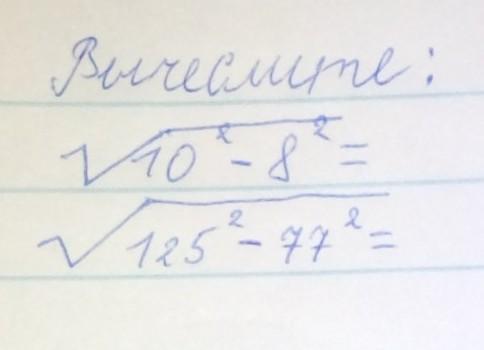 Вычеслите:
√10² - 8² =
√125² - 77² =